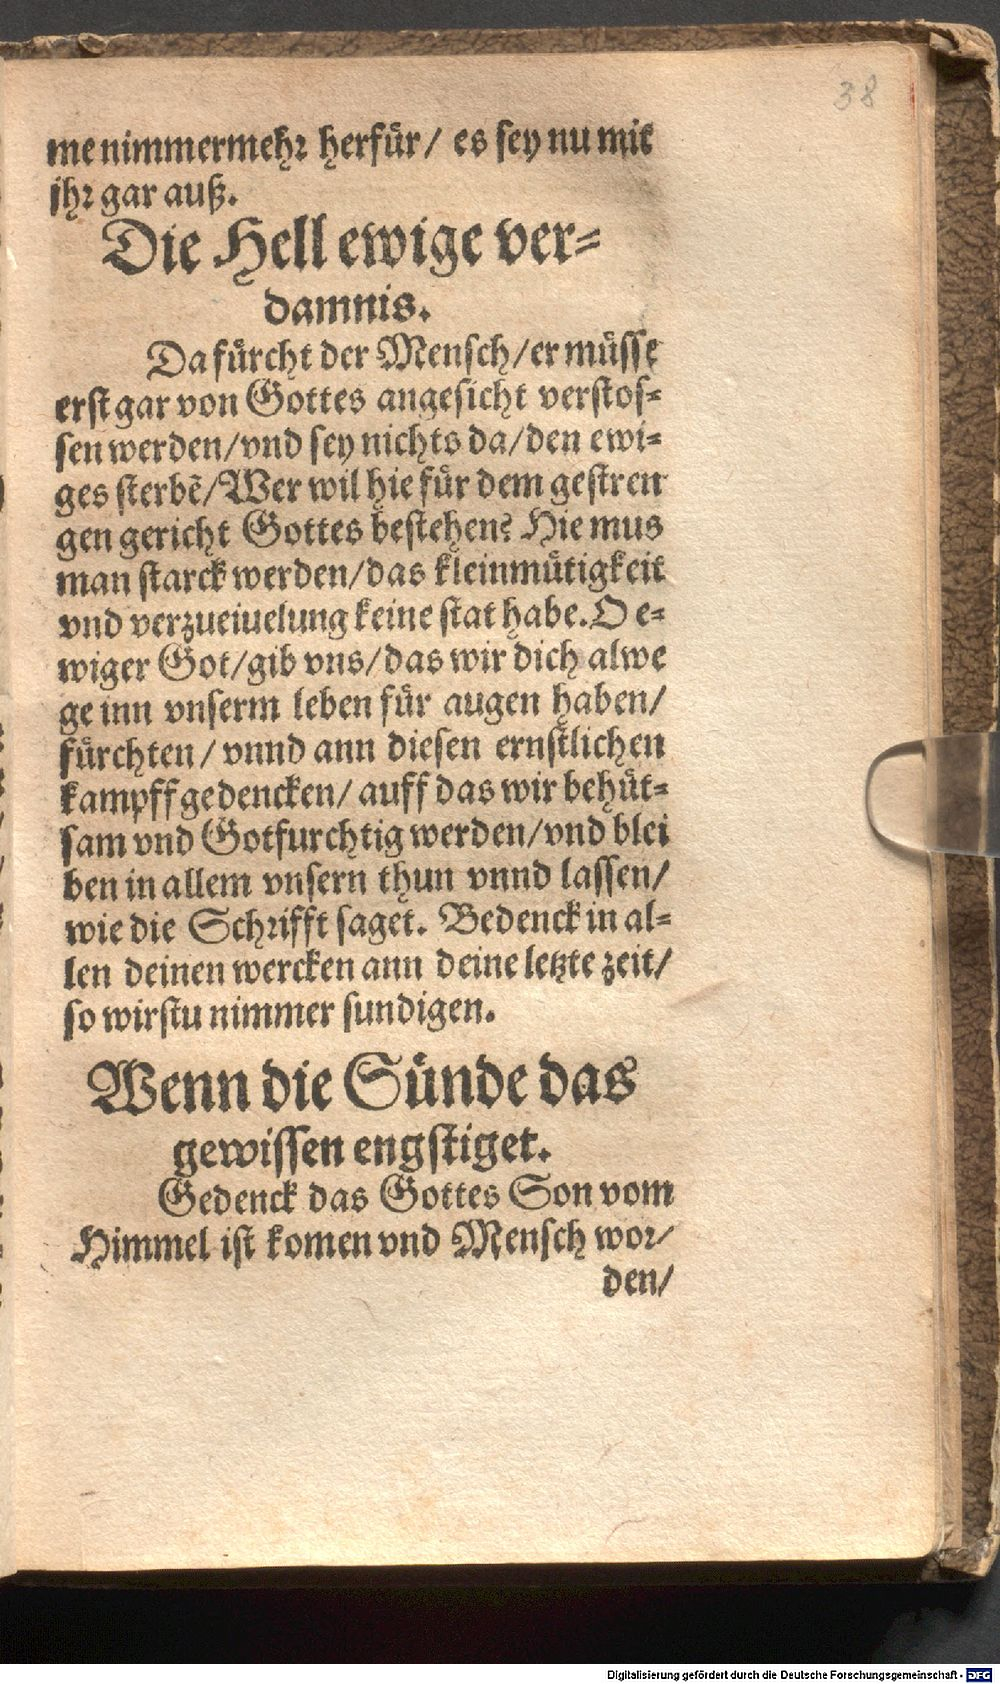 38
me nimmermehr herfür/ es sey nu mit
jhr gar auß.
Die Hell ewige ver-
damnis.
Da fürcht der Mensch/er müsse
erst gar von Gottes angesicht verstos-
sen werden/vnd sey nichts da/den ewi-
ges sterbē/Wer wil hie für dem gestren
gen gericht Gottes bestehen? Hie mus
man starck werden/das kleinmütigkeit
vnd verzueiuelung keine stat habe. O e-
wiger Got/gib vns/das wir dich alwe
ge inn vnserm leben für augen haben/
fürchten/ vnnd ann diesen ernstlichen
kampff gedencken/ auff das wir behüt-
sam vnd Gotfurchtig werden/vnd blei
ben in allem vnsern thun vnnd lassen/
wie die Schrifft saget. Bedenck in al-
len deinen wercken ann deine letzte zeit/
so wirstu nimmer sundigen.
Wenn die Sünde das
gewissen engstiget.
Gedenck das Gottes Son vom
Himmel ist komen vnd Mensch wor/
den/
Digitalisierung gefördert durch die Deutsche Forschungsgemeinschaft - DFG